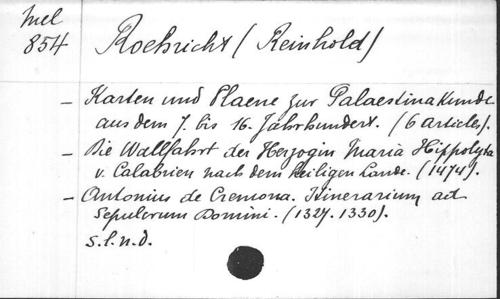 Mel
854
Roehricht (Reinhold)
- Karten und Plaene zur Palaestinakunde
aus dem 7. bis 16. Jahrhundert. (6 articles).
- Die Wallfahrt der Herzogin Maria Hippolyta
v. Calabrien nach dem heiligen Lande. (1474).
- Antonius de Cremona. Itinerarium ad
Sepulcrum Domini. (1327. 1330).
s.l.n.d.